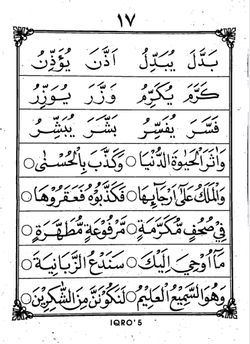 ١٧
بَدَّلَ يُبَدِّلُ اَذَّنَ يُؤَذِّنُ
كَرَّمَ يُكَرِّمُ وَزَّرَ يُوَزِّرُ
فَسَّرَ يُفَسِّرُ بَشَّرَ يُبَشِّرُ
وَاٰثَرَ الْحَيٰوةَ الدُّنْيَا وَكَذَّبَ بِالْحُسْنٰى
وَالْمَلَكُ عَلٰى اَرْجَآئِهَا فَكَذَّبُوْهُ فَعَقَرُوْهَا
فِيْ صُحُفٍ مُّكَرَّمَةٍ مَّرْفُوْعَةٍ مُّطَهَّرَةٍ
مَآ اُوْحِيَ اِلَيْكَ سَنَدْعُ الزَّبَانِيَةَ
وَهُوَ السَّمِيْعُ الْعَلِيْمُ لَنَكُوْنَنَّ مِنَ الشّٰكِرِيْنَ
IQRO' 5